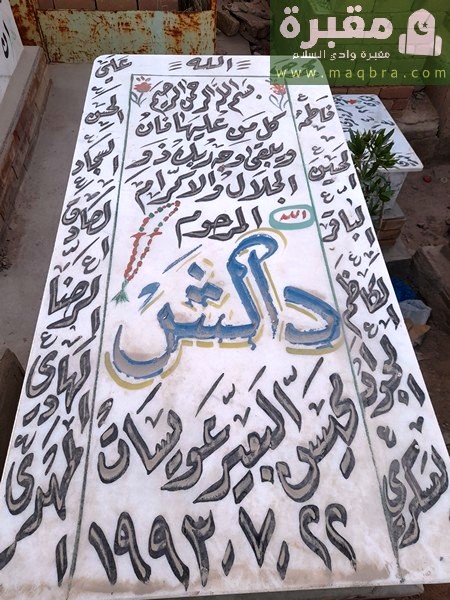 مقبرة
مقبرة وادي السلام
www.maqbra.com
الله
علي
بسم الله الرحمن الرحيم
كل من عليها فان
ويبقى وجه ربك ذو
الجلال والاكرام
الله
المرحوم
داخش
محيسن البعير عويسات
١٩٩٣.٧.٢٢
فاطمة
الحسين
الباقر
الكاظم
الجواد
العسكري
الحسن
السجاد
الصادق
الرضا
الهادي
المهدي
ان